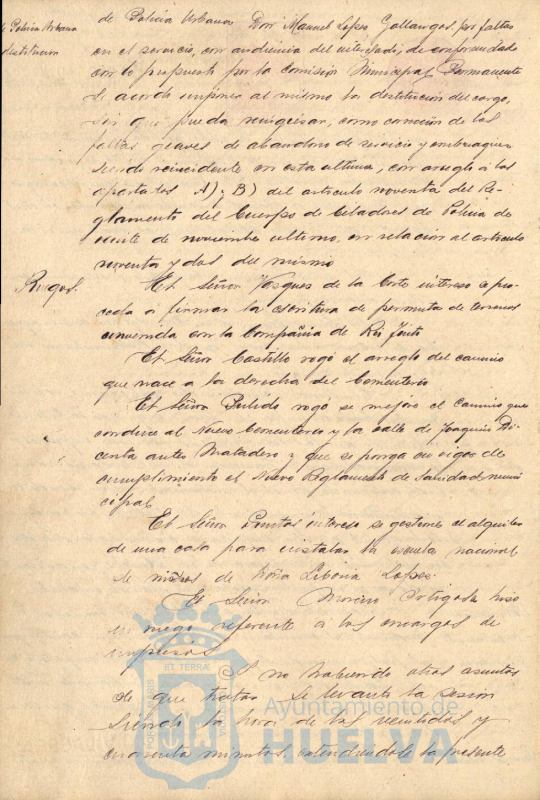 de Policia Urbana
destitucion
de Policia Urbana Don Manuel Lopez Gallangos, por faltas
en el servicio, con audiencia del interesado; de conformidad
con lo propuesto por la Comisión Municipal Permanente
se acordó imponer al mismo la destitución del cargo,
sin que pueda reingresar, como comisión de las
faltas graves de abandono de servicio y embriaguez
siendo reincidente en esta ultima, con arreglo a los
apartados A) y B) del articulo noventa del Re-
glamento del Cuerpo de Celadores de Policia de
veinte de noviembre ultimo, en relación al articulo
noventa y dos del mismo
Ruegos.
El Señor Vazques de la Corte intereso se pro-
ceda a firmar la escritura de permuta de terrenos
convenida con la Compañia de Rio Tinto
El Señor Castillo rogó el arreglo del camino
que nace a la derecha del Cementerio
El Señor Pulido rogó se mejore el camino que
conduce al Nuevo Cementerio y la calle de Joaquin Di-
centa antes Matadero y que se ponga en vigor de
cumplimiento el Nuevo Reglamento de Sanidad muni-
cipal
El Señor intereso se gestione el alquiler
de una casa para instalar la escuela nacional
de niñas de Doña Liboria Lopez.
El Señor Moreno Ortigosa hizo
un ruego referente a los encargos de
impresos
Y no habiendo otros asuntos
de que tratar se levantó la sesión
siendo la hora de las veintidos y
cuarenta minutos, extendiendose la presente
ET TERRÆ
PORTUS MARIS
Ayuntamiento de
HUELVA